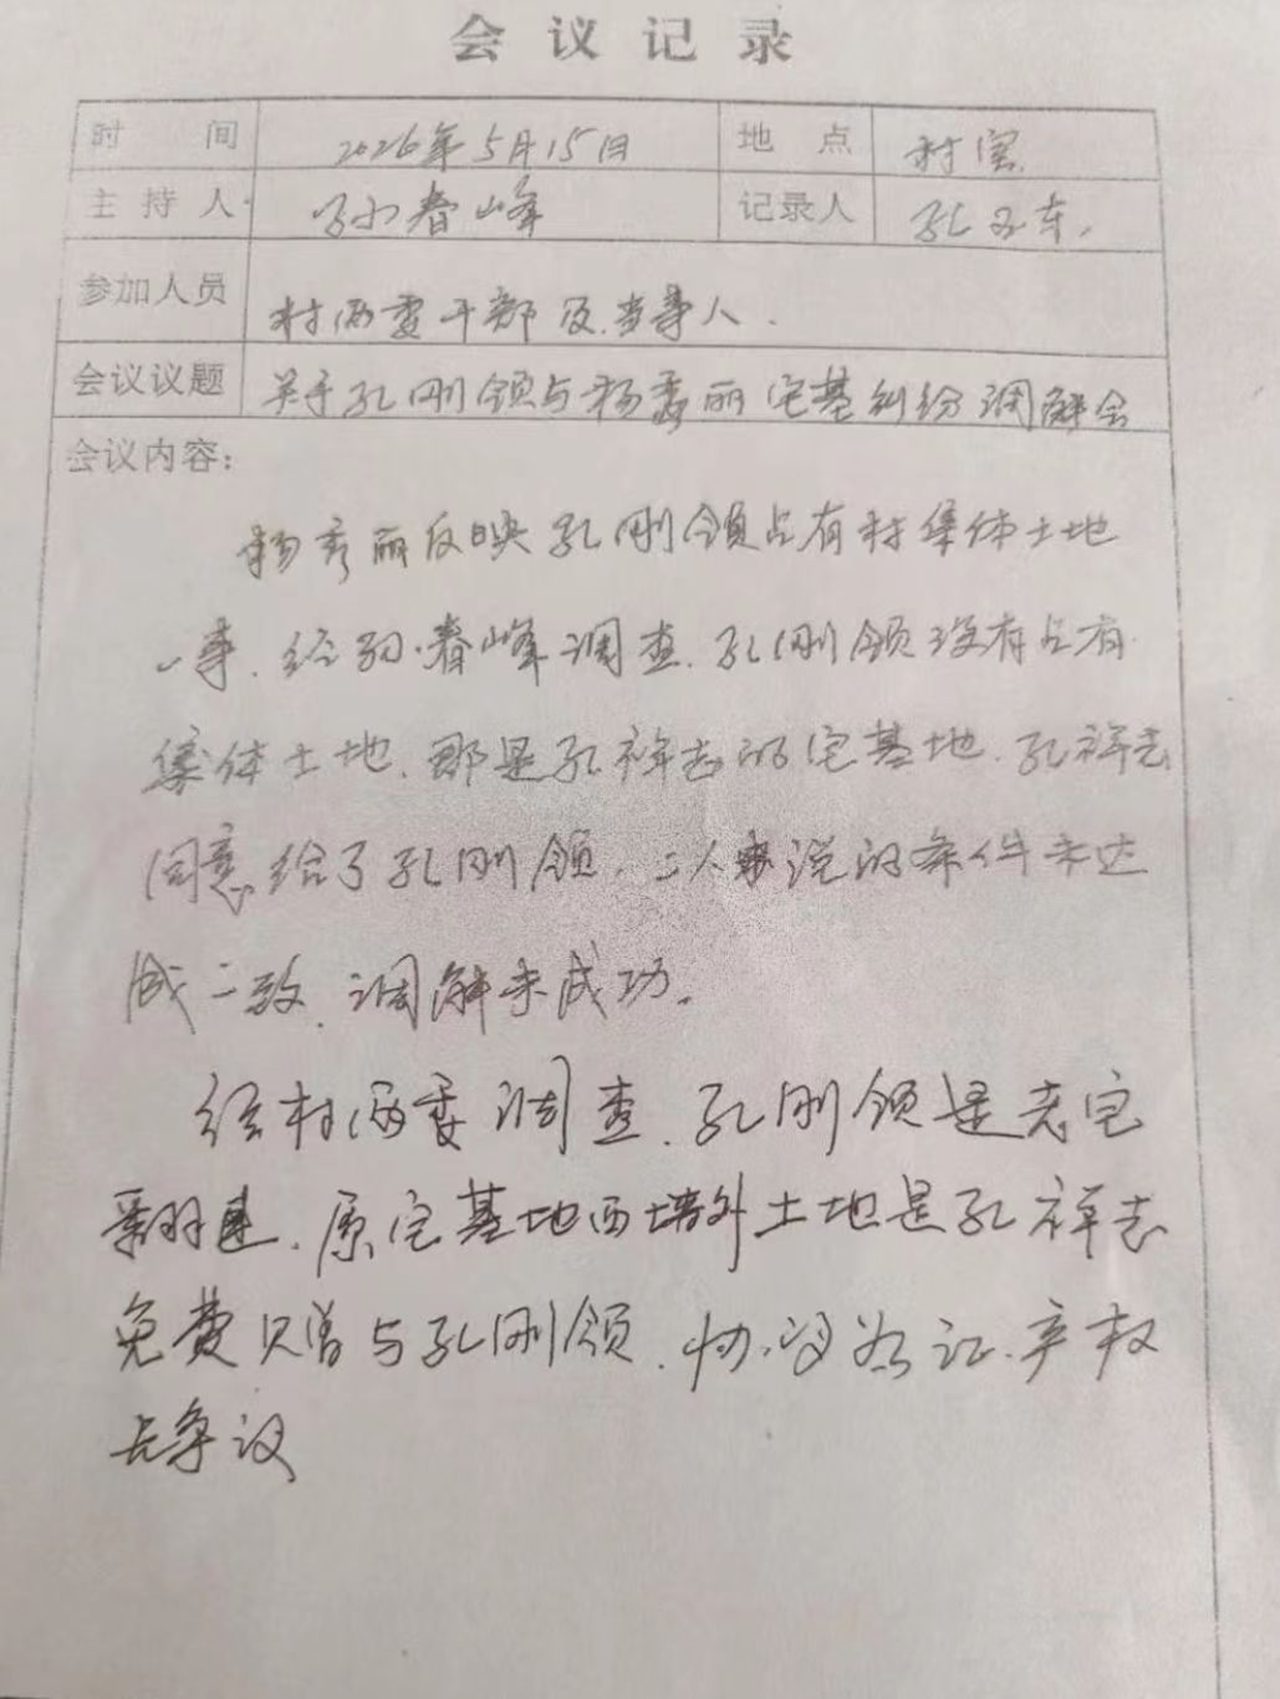 会议记录
时 间 2026年5月15日 地 点 村室
主持人 孙春峰 记录人 孔 东
参加人员 村两委干部及当事人.
会议议题 关于孔刚领与杨秀丽宅基纠纷调解会
会议内容：
杨秀丽反映孔刚领占有村集体土地
一事.给孙春峰调查.孔刚领没有占有
集体土地.那是孔祥志的宅基地.孔祥志
同意给了孔刚领.二人来说的条件未达
成一致.调解未成功。
经村两委调查.孔刚领是老宅
翻建.原宅基地西墙外土地是孔祥志
免费赠与孔刚领.协议为证.产权
无争议